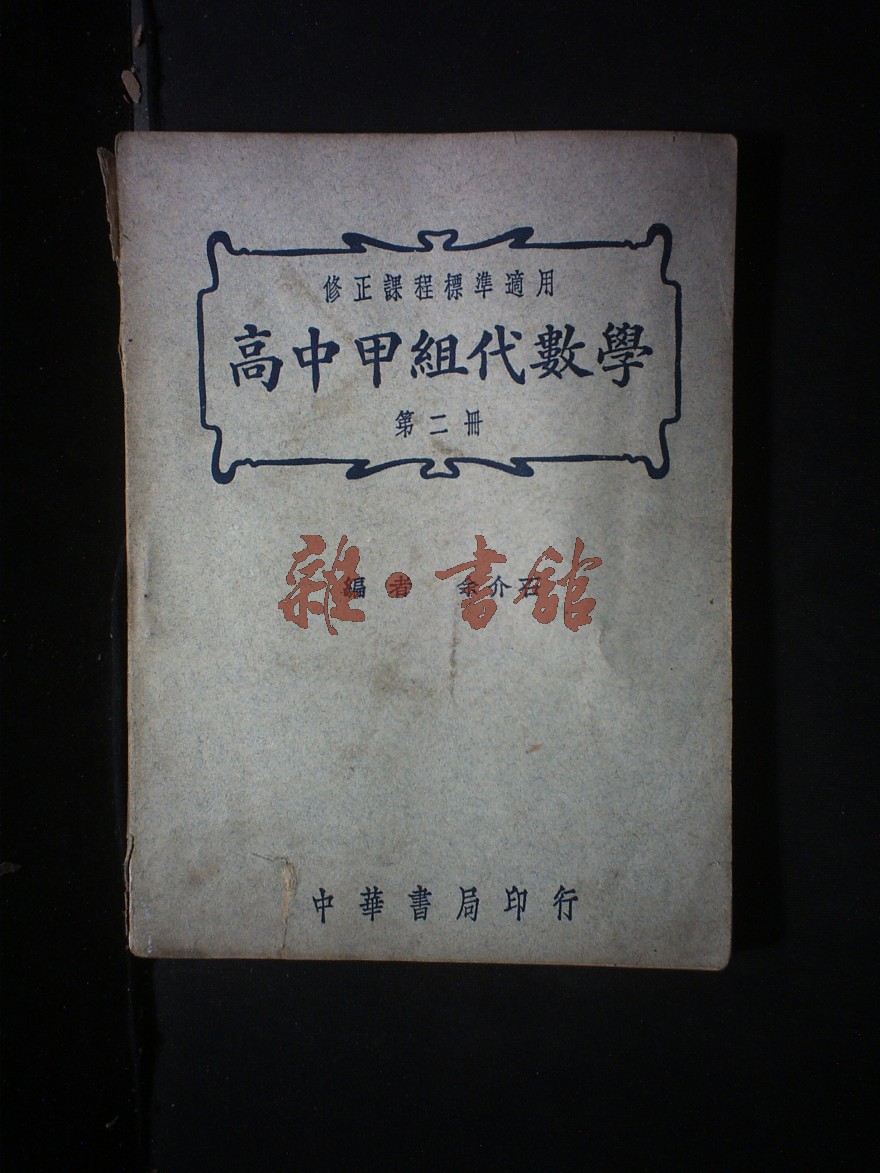 修正課程標準適用
高中甲組代數學
第二冊
編者 余介石
雜·書館
中華書局印行